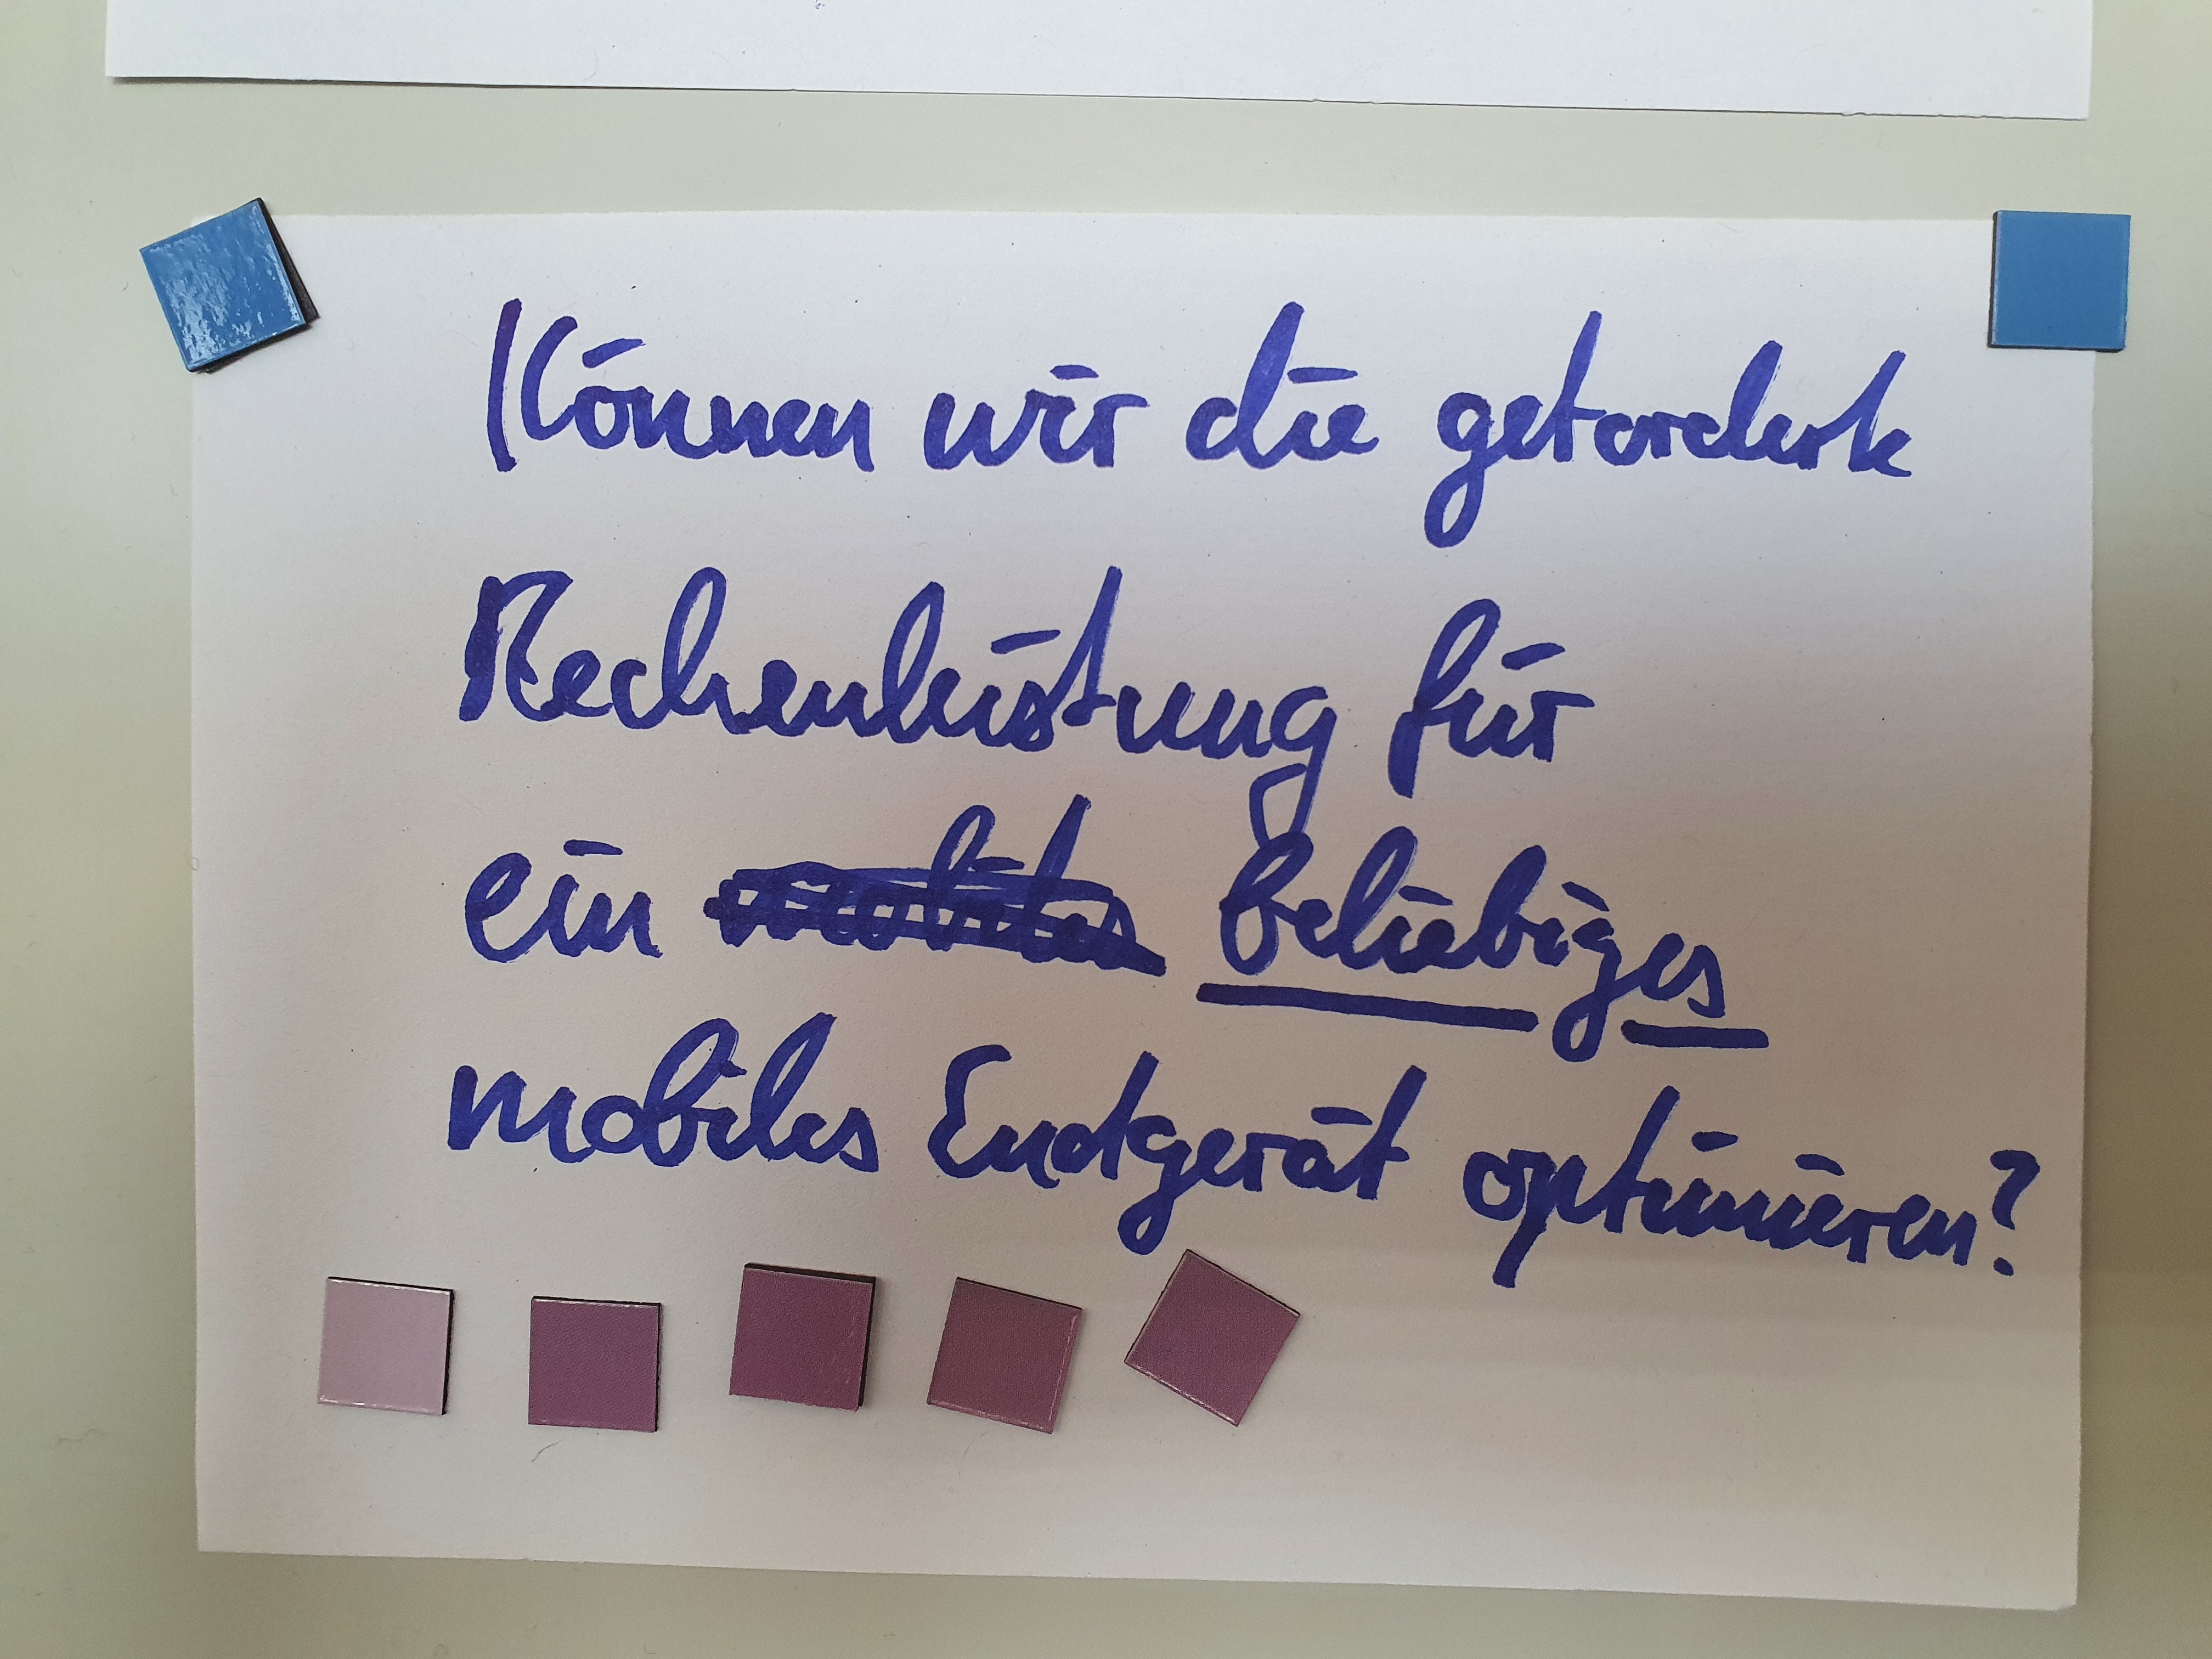 Können wir die geforderte
Rechenleistung für
ein mobiles beliebiges
mobiles Endgerät optimieren?